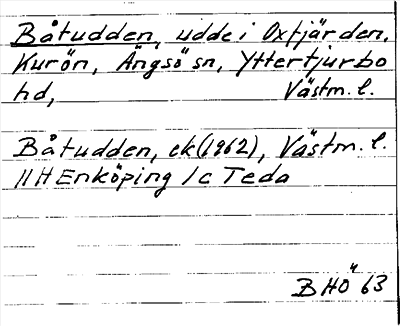 Båtudden, udde i Oxfjärden,
Kurön, Ängsö sn, Yttertjurbo
hd, Västm. l.
Båtudden, ek(1962), Västm. l.
11H Enköping 1c Teda
BHÖ 63